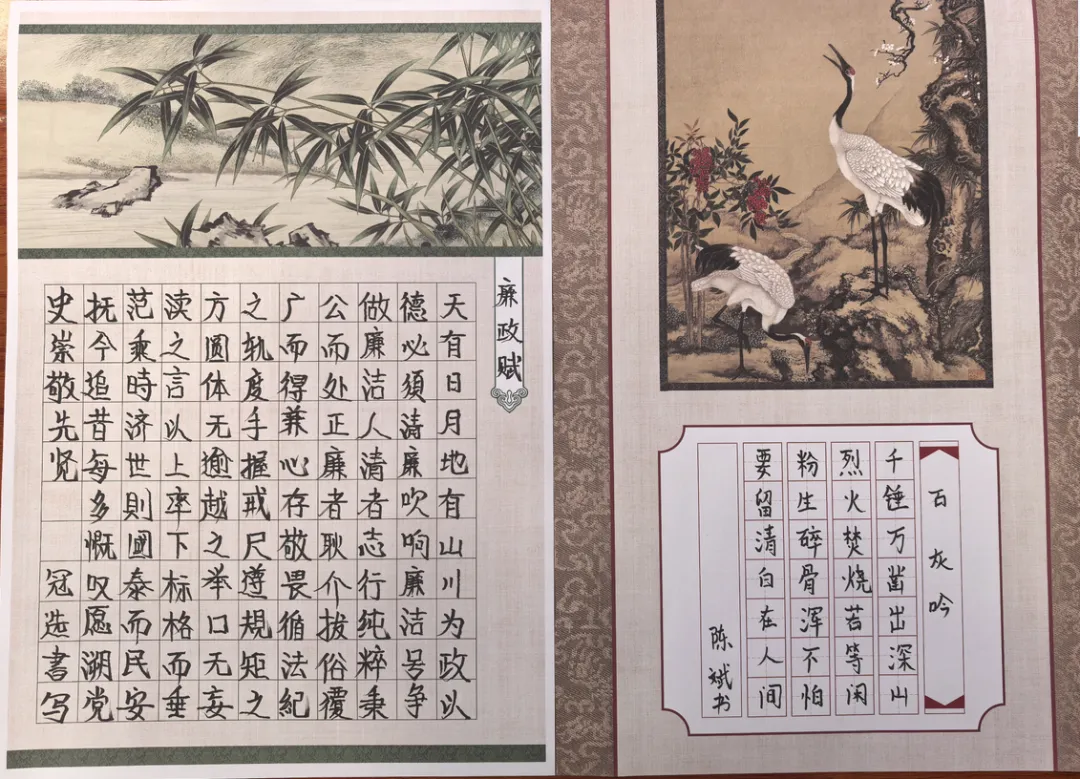 廉政赋
天有日月地有山川为政以
德必須清廉吹响廉洁号争
做廉洁人清者志行纯粹秉
公而处正廉者耿介拔俗覆
广而得兼心存敬畏循法紀
之軌度手握戒尺遵規矩之
方圆体无逾越之举口无妄
渎之言以上率下标格而垂
范乘時济世則國泰而民安
抚今追昔每多慨叹愿溯党
史崇敬先贤 冠选書写
石灰吟
千锤万凿出深山
烈火焚烧若等闲
粉生碎骨浑不怕
要留清白在人间
陈斌书